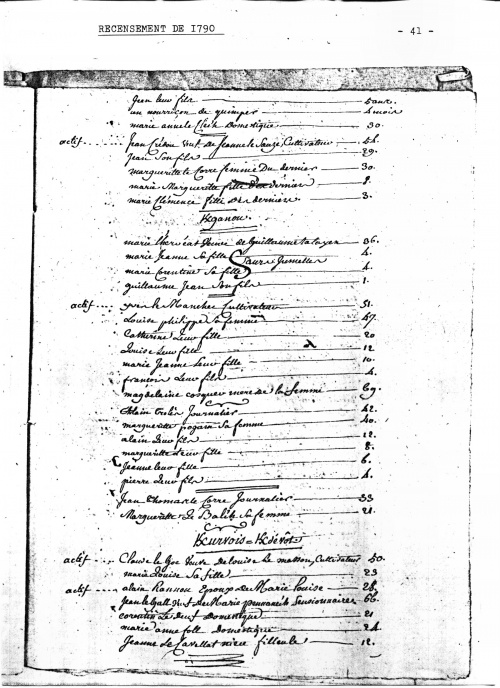 RECENSEMENT DE 1790 - 41 -
Jean leur fils 5 ans.
un nourriçon de quimper 4 mois
marie anne le Clech Domestique 30.
actif Jean Veuf de Jeanne le Cultivateur 54.
Jean Son fils 29.
margueritte le Corre femme Du dernier 30.
marie Margueritte fille Du dernier 8.
marie Clémence fille Des derniers 3.
Kganou
marie Veuve de Guillaume 36.
marie Jeanne Sa fille 4.
Sœurs Jumelles
marie Corentine Sa fille 4.
guillaume Jean Son fils 1.
actif yves le Manchec Cultivateur 51.
Louise philippe Sa femme 47.
Catherine Leur fille 20
Louise Leur fille 12
marie Jeanne Leur fille 10.
francois Leur fils 4.
magdelaine cosquer mere de la femme 69.
Alain Journalier 42.
margueritte Sa femme 40.
alain Leur fils 12.
margueritte Leur fille 8.
Jeanne leur fille 6.
pierre Leur fils 4.
Jean Thomas le Corre Journalier 33
Margueritte Le Sa femme 21.
Kurvois = Kdévot
actif Clow de le Goc Veuve De Louise Le masson, Cultivateur 50.
marie Louise Sa fille 23
actif alain Rannou Epoux de Marie Louise 28.
Jean le gall De Marie 66.
corentin Le Domestique 21
marie anne foll Domestique 24.
Jeanne Le Cavellat niece filleule 12.